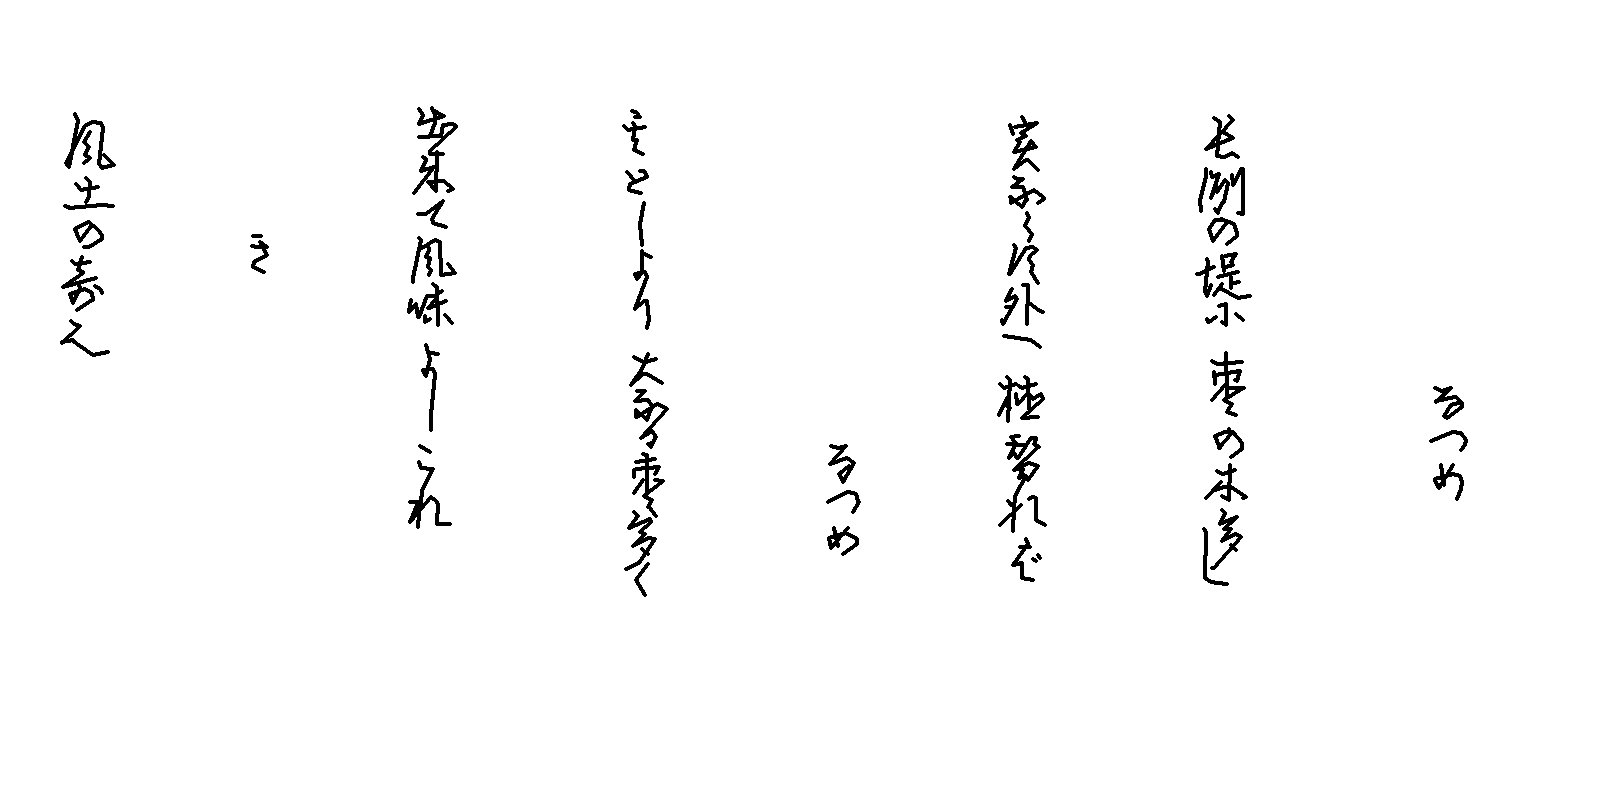 なつめ
長渕の堤に 棗の木多し
実ならず外へ 植替れば
なつめ
其としより 大なる棗多く
出来て風味よし これ
き
風土の奇也